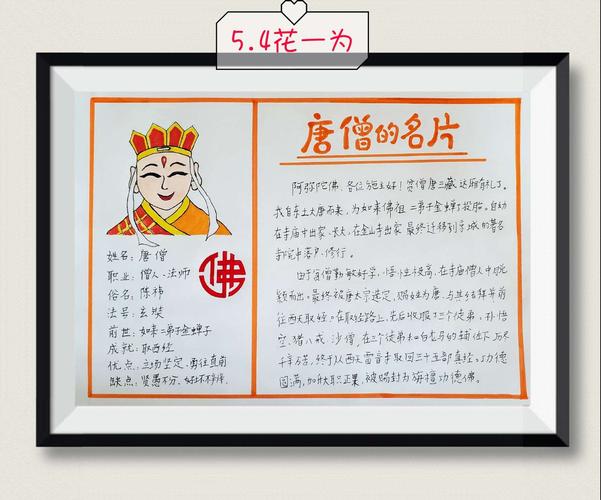 5.4花一为
唐僧的名片
姓名：唐僧
职业：僧人、法师
俗名：陈祎
法号：玄奘
前世：如来二弟子金蝉子
成就：取西经
优点：立场坚定、勇往直前
缺点：贤愚不分、好坏不辨
佛
阿弥陀佛，各位施主好！贫僧唐三藏这厢有礼了。
我自东土大唐而来，为如来佛祖二弟子金蝉子投胎。自幼
在寺庙中出家、长大，在金山寺出家最终迁移到京城的著名
寺院中落户、修行。
由于贫僧勤敏好学，悟性极高，在寺庙僧人中脱
颖而出。最终被唐太宗选定，赐姓为唐，与其结拜并前
往西天取经。在取经路上，先后收服了三个徒弟，孙悟
空、猪八戒、沙僧，在三个徒弟和白龙马的辅佐下，历尽
千辛万苦，终于从西天雷音寺取回三十五部真经。功德
圆满，加升大职正果，被赐封为旃檀功德佛。